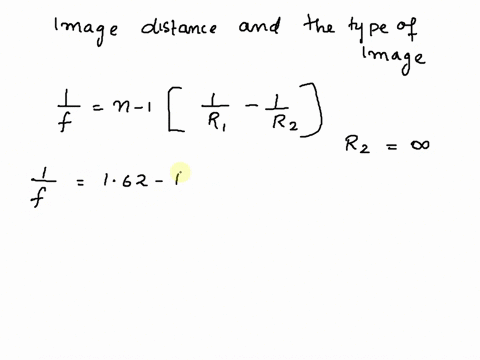 Image distance and the type of
Image
1/f = n-1 [ 1/R1 - 1/R2 ]
R2 = ∞
1/f = 1.62 - 1